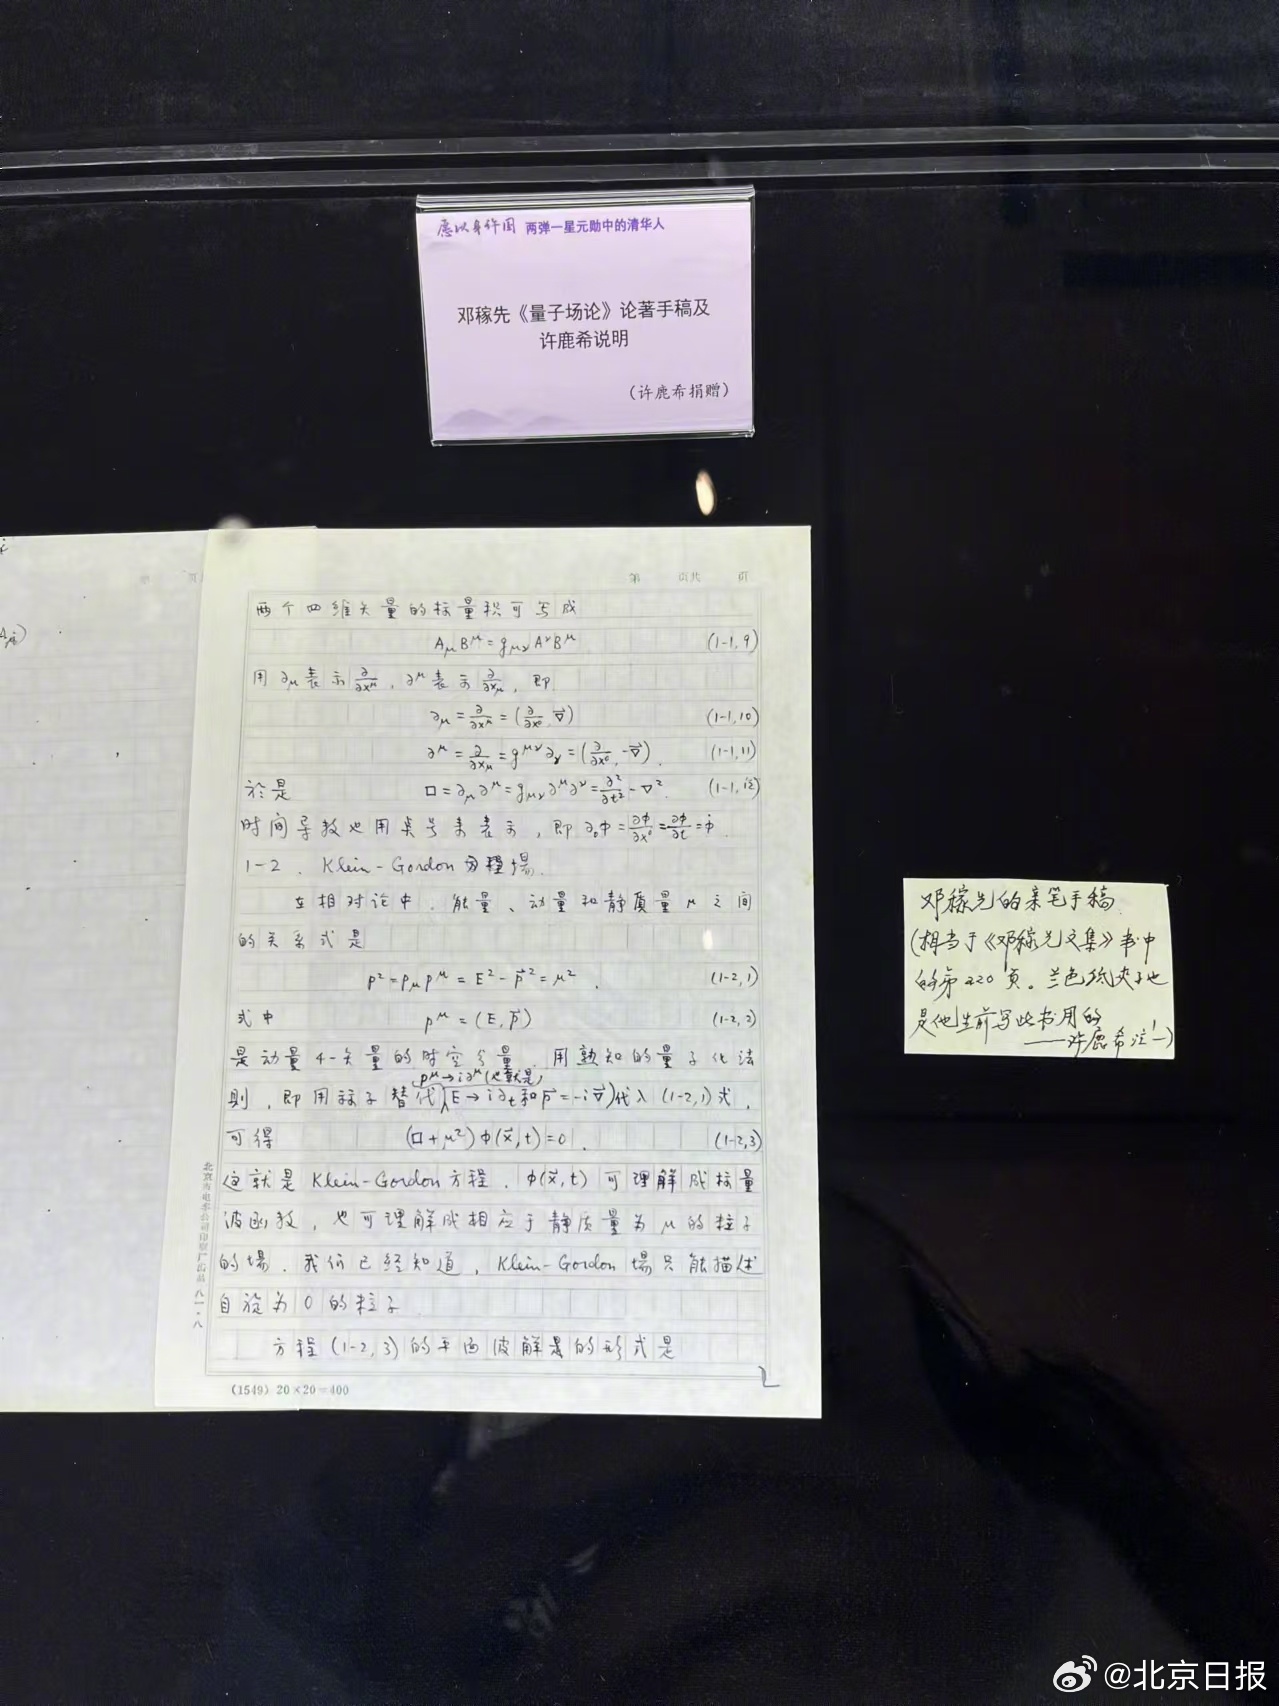 愿以身许国 两弹一星元勋中的清华人
邓稼先《量子场论》论著手稿及
许鹿希说明
（许鹿希捐赠）
第 页共 页
两个四维矢量的标量积可写成
A_μ B^μ = g_μν A^ν B^μ (1-1,9)
用 ∂_μ 表示 ∂/∂x^μ, ∂^μ 表示 ∂/∂x_μ, 即
∂_μ = ∂/∂x^μ = (∂/∂x⁰, ∇⃗) (1-1,10)
∂^μ = ∂/∂x_μ = g^μν ∂_ν = (∂/∂x⁰, -∇⃗). (1-1,11)
於是 □ = ∂_μ ∂^μ = g_μν ∂^μ ∂^ν = ∂²/∂t² - ∇². (1-1,12)
时间导数也用点号来表示, 即 ∂₀φ = ∂φ/∂x⁰ = ∂φ/∂t = φ̇.
1-2. Klein-Gordon 方程場.
在相对论中, 能量、动量和静质量 μ 之间
的关系式是
p² = p_μ p^μ = E² - p⃗² = μ². (1-2,1)
式中 p^μ = (E, p⃗) (1-2,2)
是动量4-矢量的时空分量. 用熟知的量子化法
p^μ → i∂^μ (也就是,
则, 即用算子替代 E → i∂_t 和 p⃗ = -i∇⃗) 代入 (1-2,1) 式,
可得 (□ + μ²) φ(x⃗, t) = 0. (1-2,3)
这就是 Klein-Gordon 方程. φ(x⃗, t) 可理解成标量
波函数, 也可理解成相应于静质量为 μ 的粒子
的場. 我们已经知道, Klein-Gordon 場只能描述
自旋为 0 的粒子.
方程 (1-2,3) 的平面波解的形式是
2
(1549) 20×20=400
北京市电车公司印刷厂出品 八一·八
邓稼先的亲笔手稿
(相当于《邓稼先文集》书中
的第220页。兰色纸夹子也
是他生前写此书用的
——许鹿希注!)
@北京日报